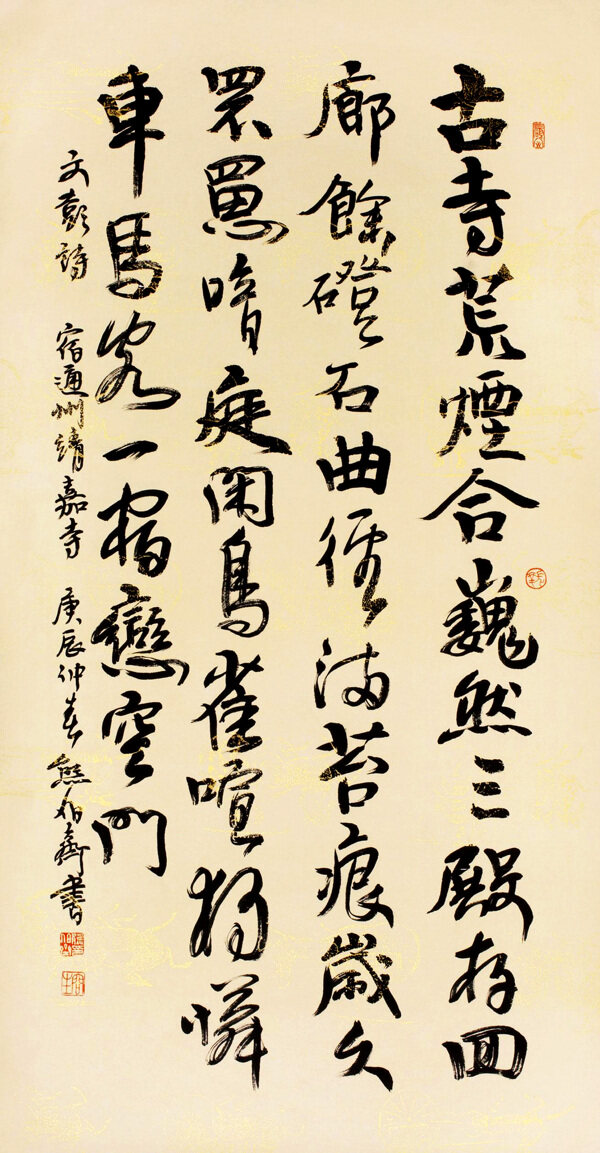 古寺荒煙合巍然三殿存回
廊餘磴石曲徑滿苔痕歲久
罘罳暗庭閑鳥雀喧獨憐
車馬客一宿戀空門
文彭詩 宿通州靖嘉寺 庚辰仲春熊伯齊書